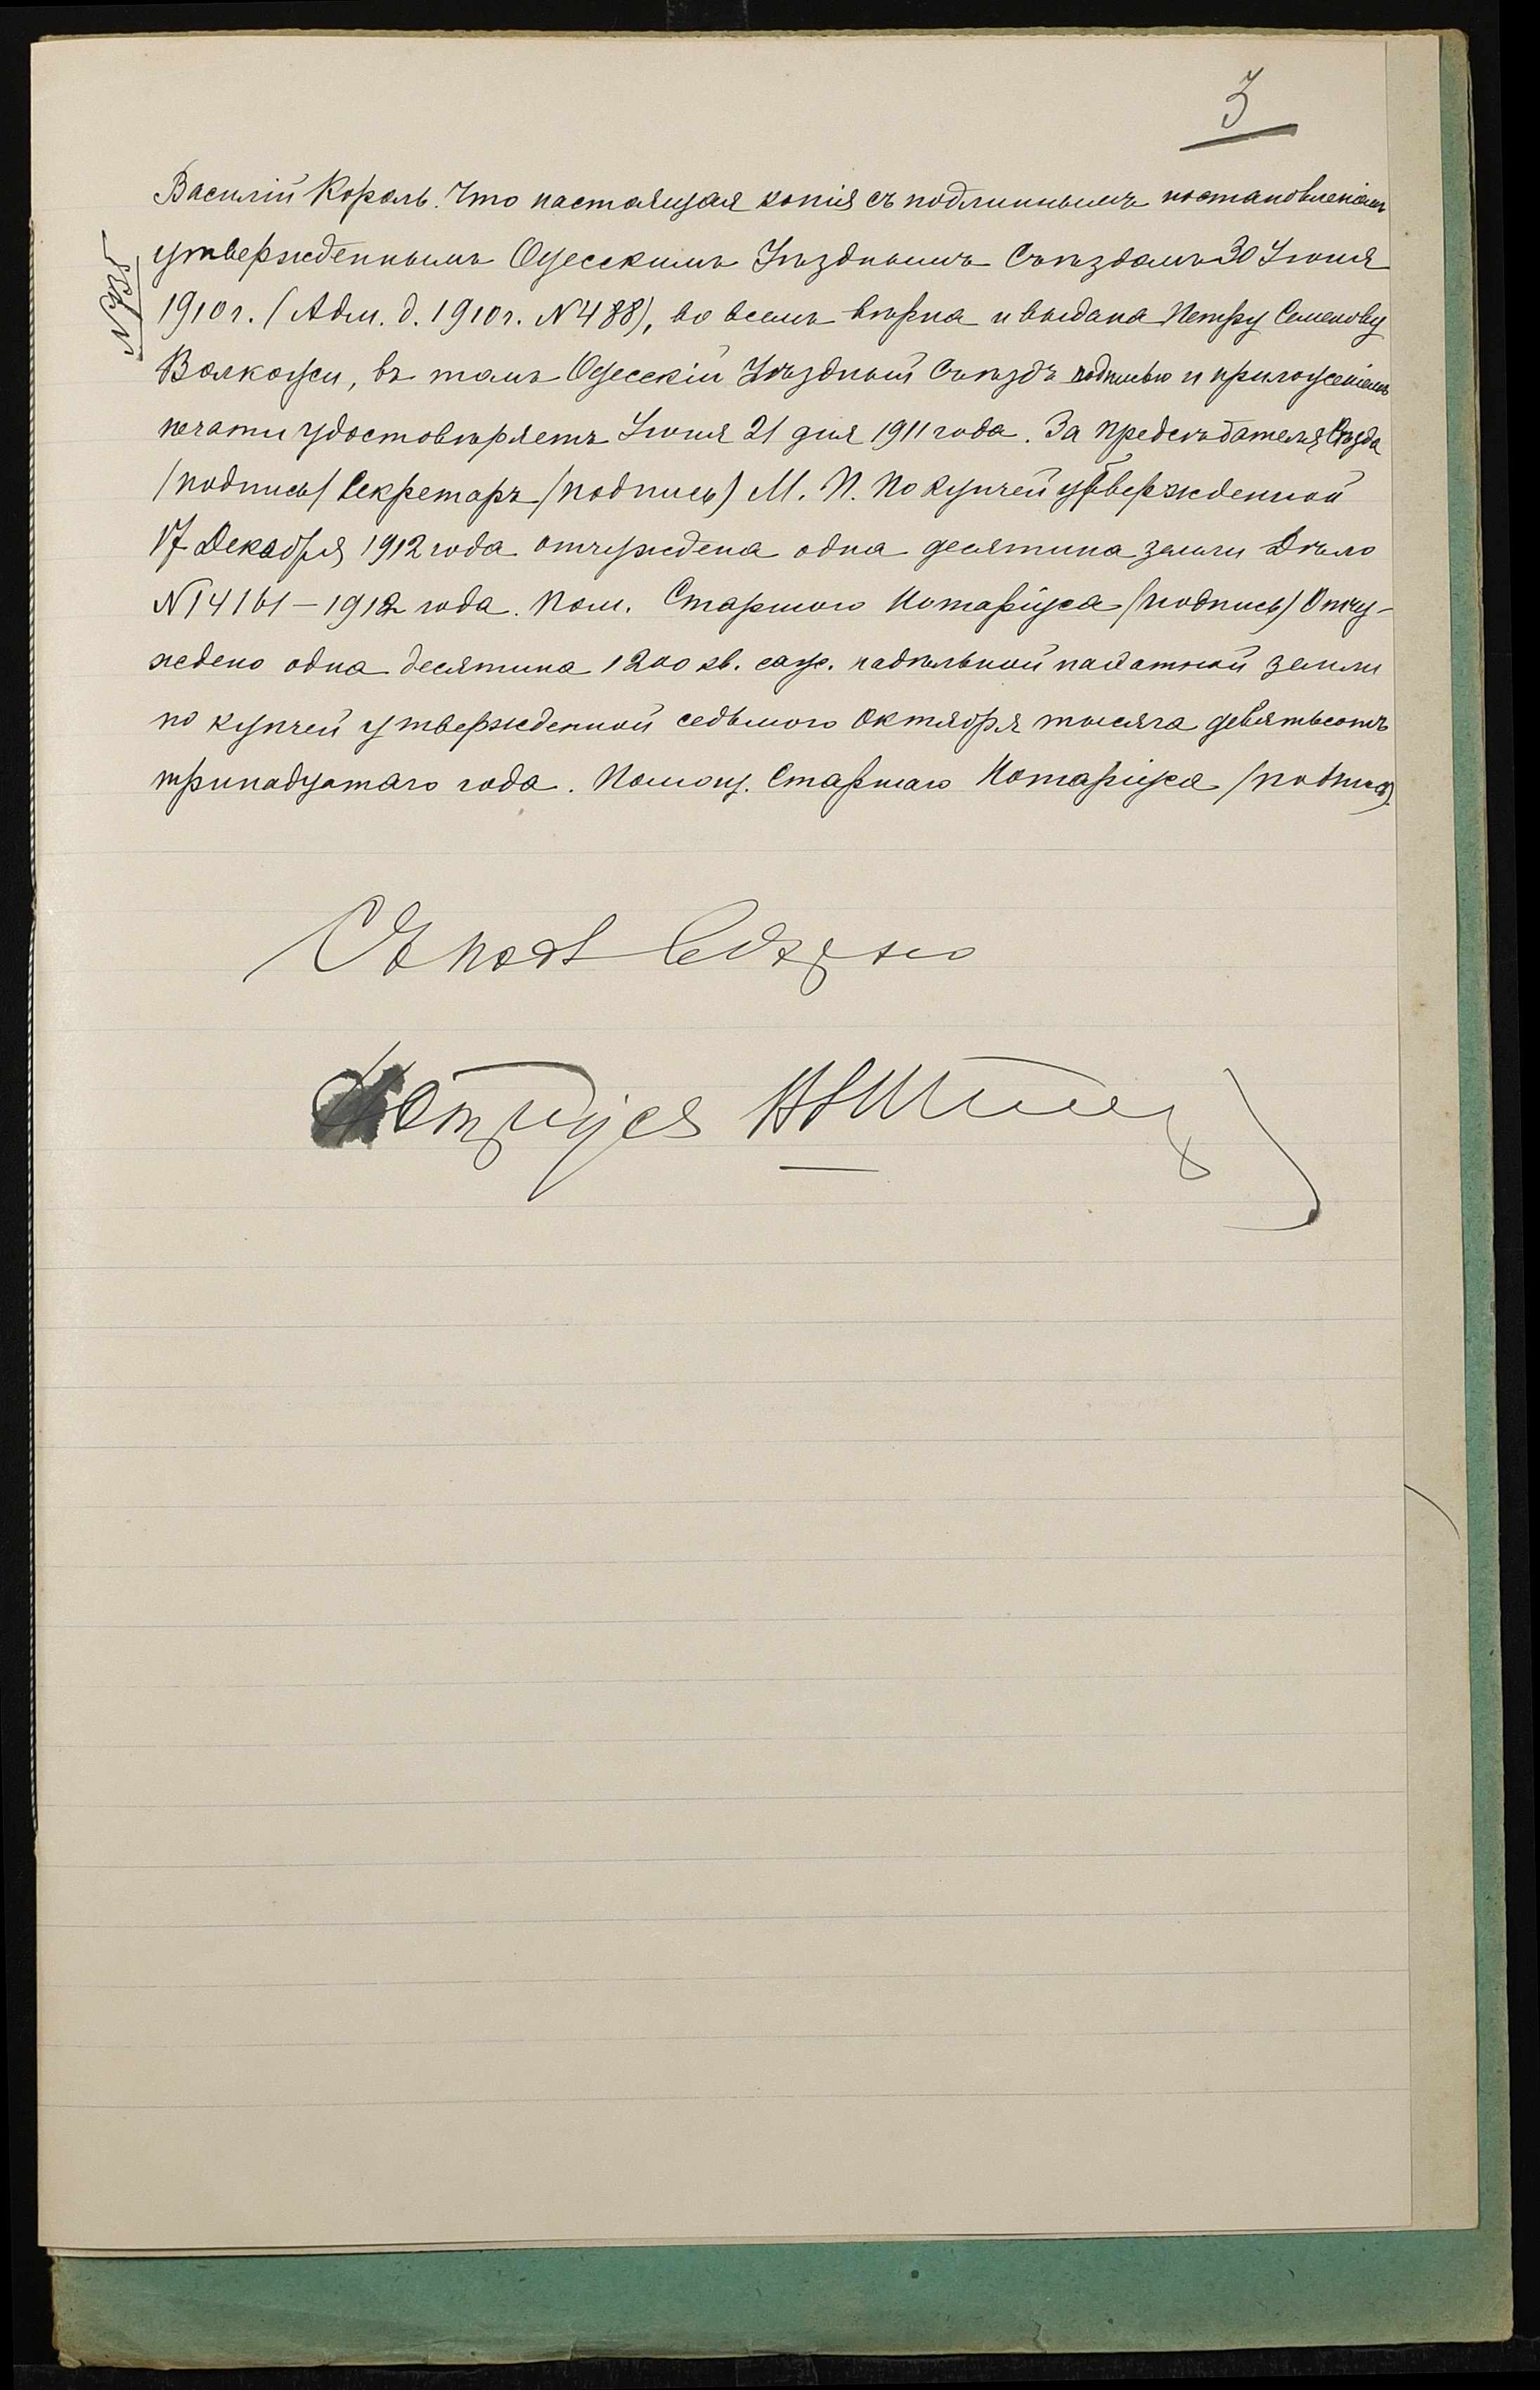 3
Василій Король. Что настоящая копія съ подлиннымъ постановленіемъ
утвержденнымъ Одесскимъ Уѣзднымъ Съѣздомъ 30 Іюня
1910 г. (Адм. д. 1910 г. № 488), во всемъ вѣрна и выдана Петру Семенову
Волкоуси, въ томъ Одесскій Уѣздный Съѣздъ подписью и приложеніемъ
печати удостовѣряетъ Іюня 21 дня 1911 года. За Предсѣдателя Съѣзда
/подпись/ Секретарь /подпись/ М. П. По купчей утвержденной
17 Декабря 1912 года отчуждена одна десятина земли Дѣло
№ 14161 – 1912 года. Пом. Старшаго Нотаріуса /подпись/ Отчу-
ждено одна десятина 1200 кв. саж. надѣльной пахатной земли
по купчей утвержденной седьмого Октября тысяча девятьсотъ
тринадцатаго года. Помощ. Старшаго Нотаріуса /подпись/.
Нотаріуса